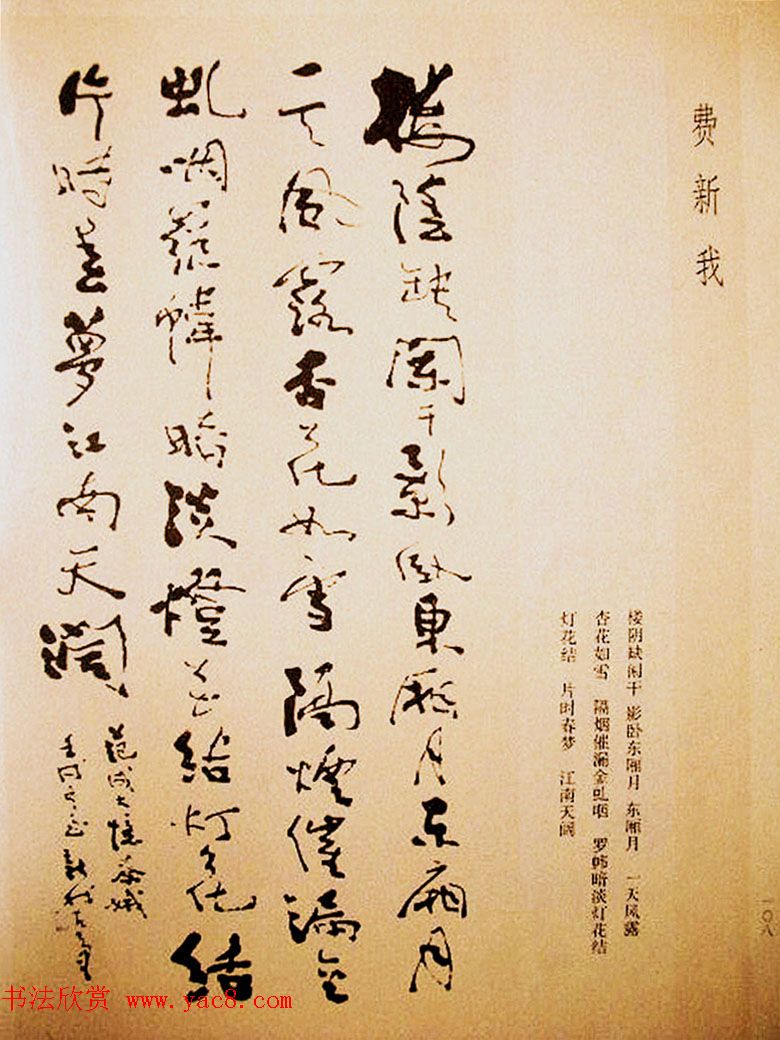 费新我
楼阴缺阑干 影卧东厢月 东厢月 一天风露
杏花如雪 隔烟催漏金虬咽 罗帏暗淡灯花结
灯花结 片时春梦 江南天阔
一〇八
樓陰缺闌干影臥東廂月东廂月
一天風露杏花如雪隔煙催漏金
虬咽羅幃暗淡燈花結灯花結
片時春夢江南天闊
范成大憶秦娥
壬戌之 新我左筆
书法欣赏 www.yac8.com